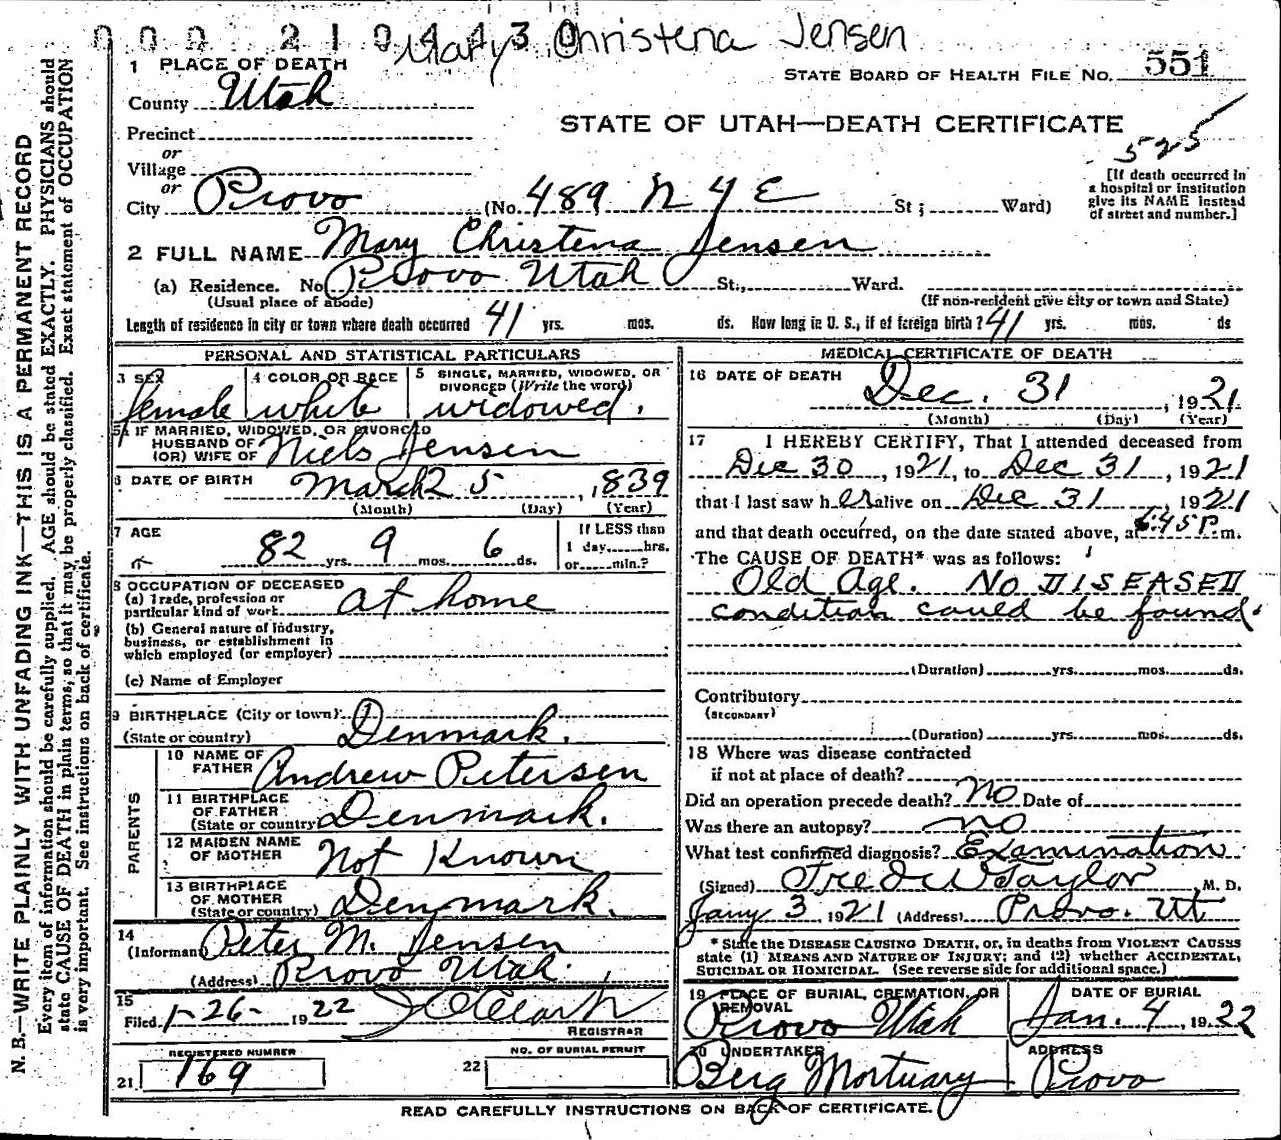 000 210443 0 Mary Christena Jensen
1 PLACE OF DEATH
STATE BOARD OF HEALTH FILE NO. 551
County Utah
STATE OF UTAH—DEATH CERTIFICATE
Precinct
525
or
Village
or
City Provo (No. 489 N 4 E St; Ward)
[If death occurred in
a hospital or institution
give its NAME instead
of street and number.]
2 FULL NAME Mary Christena Jensen
(a) Residence. No. Provo Utah St., Ward.
(Usual place of abode) (If non-resident give city or town and State)
Length of residence in city or town where death occurred 41 yrs. mos. ds. How long in U. S., if of foreign birth? 41 yrs. mos. ds
PERSONAL AND STATISTICAL PARTICULARS
3 SEX 4 COLOR OR RACE 5 SINGLE, MARRIED, WIDOWED, OR
DIVORCED (Write the word)
female white widowed.
5a IF MARRIED, WIDOWED, OR DIVORCED
HUSBAND OF
(OR) WIFE OF Niels Jensen
6 DATE OF BIRTH March 25, 1839
(Month) (Day) (Year)
7 AGE
82 yrs. 9 mos. 6 ds.
If LESS than
1 day......hrs.
or......min.?
8 OCCUPATION OF DECEASED
(a) Trade, profession or
particular kind of work at home
(b) General nature of industry,
business, or establishment in
which employed (or employer)
(c) Name of Employer
9 BIRTHPLACE (City or town)
(State or country) Denmark.
PARENTS
10 NAME OF
FATHER Andrew Petersen
11 BIRTHPLACE
OF FATHER
(State or country) Denmark.
12 MAIDEN NAME
OF MOTHER Not Known
13 BIRTHPLACE
OF MOTHER
(State or country) Denmark.
14
(Informant) Peter M. Jensen
(Address) Provo Utah.
15
Filed 1-26- 1922
REGISTRAR
REGISTERED NUMBER
21 169
NO. OF BURIAL PERMIT
22
MEDICAL CERTIFICATE OF DEATH
16 DATE OF DEATH Dec. 31, 1921
(Month) (Day) (Year)
17 I HEREBY CERTIFY, That I attended deceased from
Dec 30, 1921, to Dec 31, 1921
that I last saw her alive on Dec 31 1921
and that death occurred, on the date stated above, at 6:45 P.m.
The CAUSE OF DEATH* was as follows:
Old Age. No DISEASED
condition could be found.
(Duration) yrs. mos. ds.
Contributory
(SECONDARY)
(Duration) yrs. mos. ds.
18 Where was disease contracted
if not at place of death?
Did an operation precede death? no Date of
Was there an autopsy? no
What test confirmed diagnosis? Examination
(Signed) Fred W Taylor, M. D.
Jany 3 1921 (Address) Provo. Ut
* State the DISEASE CAUSING DEATH, or, in deaths from VIOLENT CAUSES
state (1) MEANS AND NATURE OF INJURY; and (2) whether ACCIDENTAL,
SUICIDAL OR HOMICIDAL. (See reverse side for additional space.)
19 PLACE OF BURIAL, CREMATION, OR
REMOVAL
Provo Utah
DATE OF BURIAL
Jan. 4, 1922
20 UNDERTAKER
Berg Mortuary
ADDRESS
Provo
READ CAREFULLY INSTRUCTIONS ON BACK OF CERTIFICATE.
N. B.—WRITE PLAINLY WITH UNFADING INK—THIS IS A PERMANENT RECORD
Every item of information should be carefully supplied. AGE should be stated EXACTLY. PHYSICIANS should
state CAUSE OF DEATH in plain terms, so that it may be properly classified. Exact statement of OCCUPATION
is very important. See instructions on back of certificate.